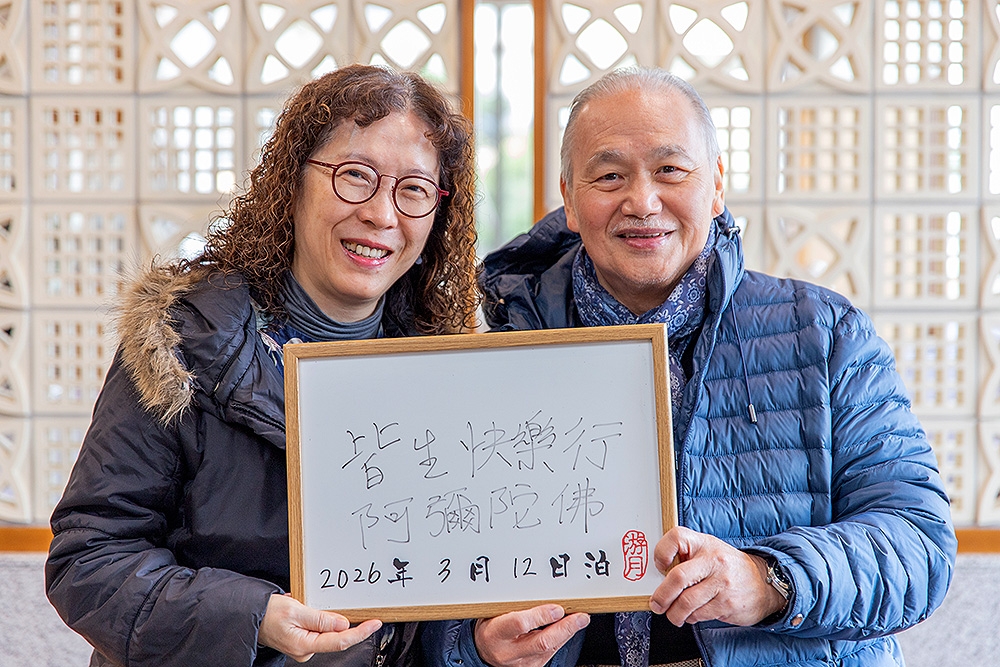 皆生快樂行
阿彌陀佛
2026年3月12日泊
游月